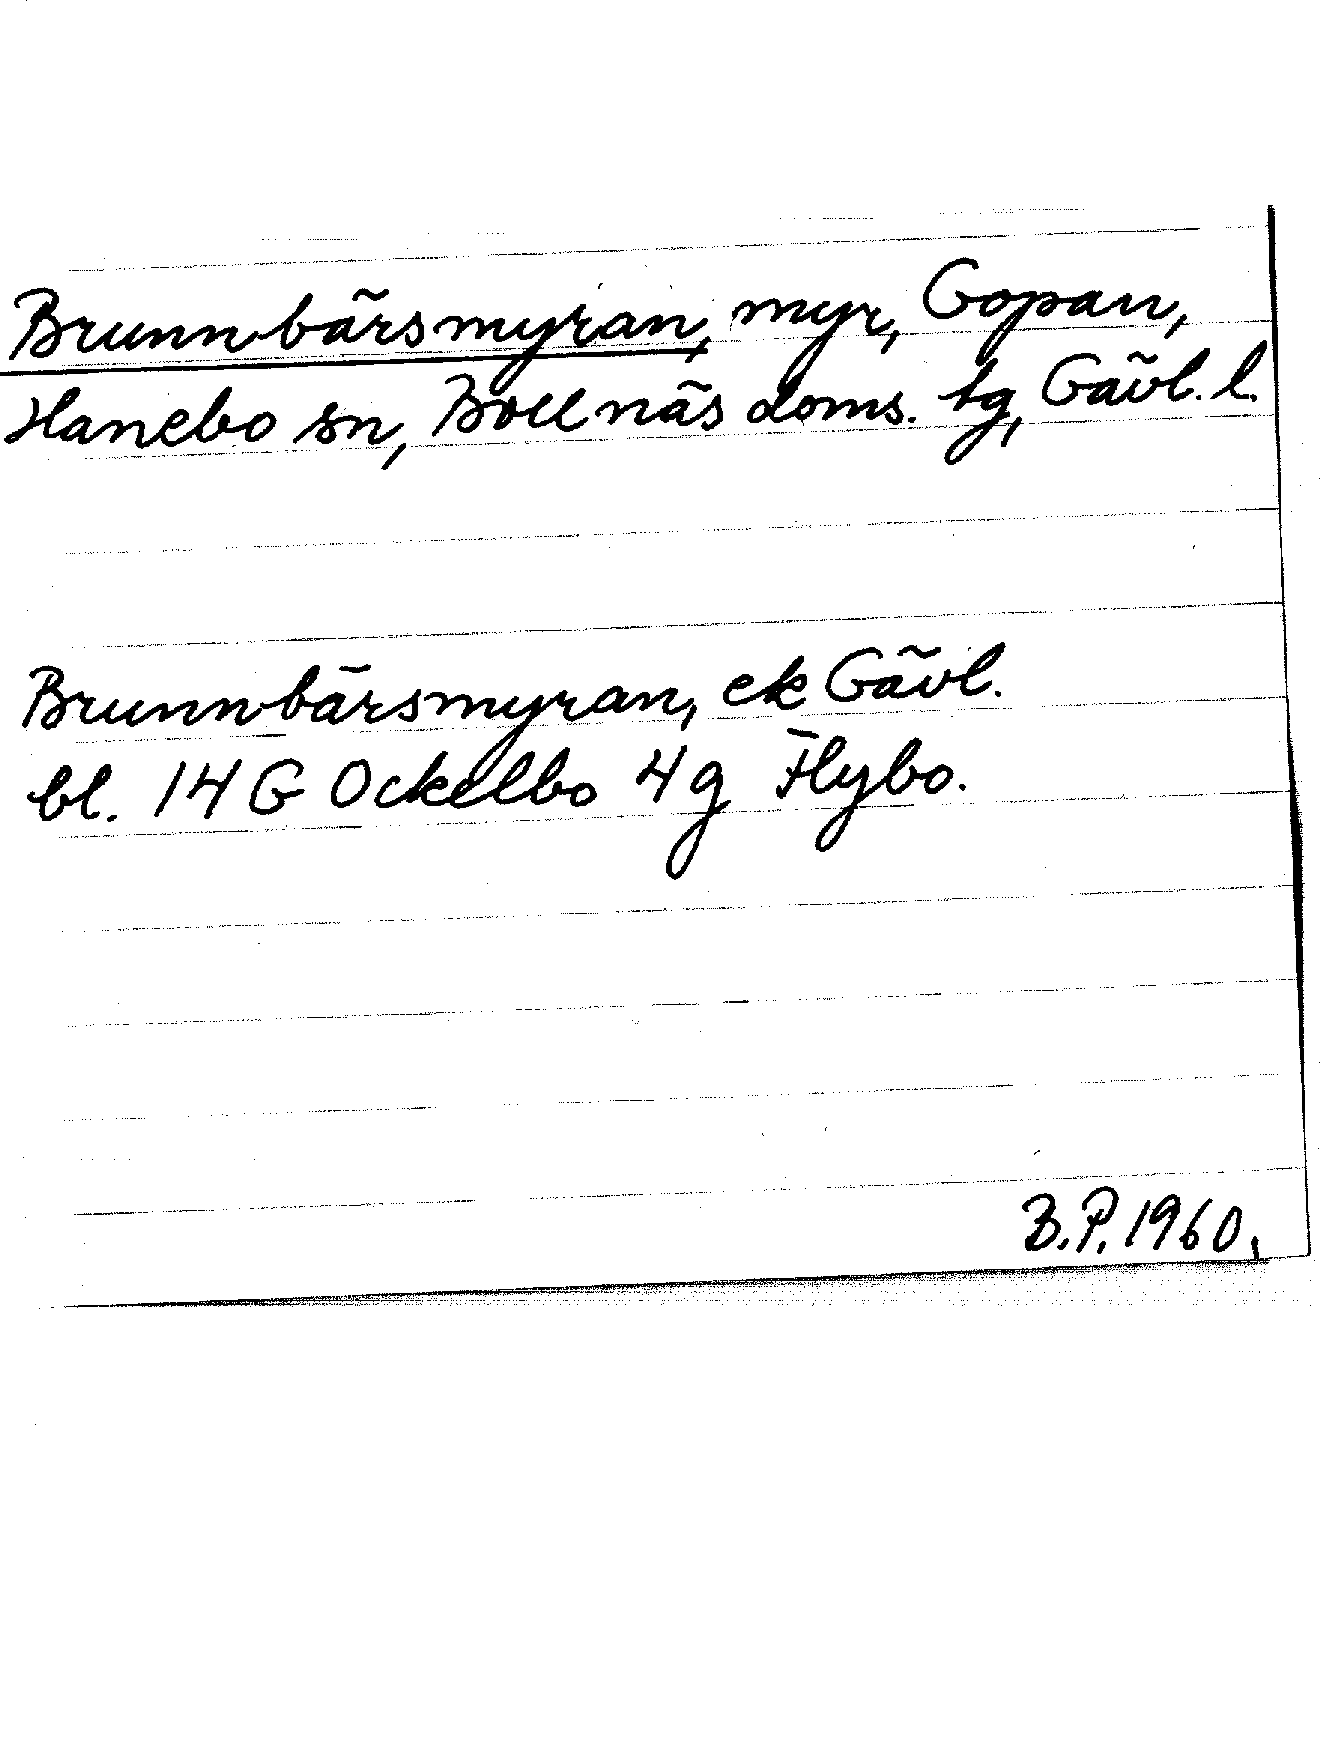 Brunnbärsmyran, myr, Gopan,
Hanebo sn, Bollnäs doms. tg, Gävl. l.
Brunnbärsmyran, ek Gävl.
bl. 14 G Ockelbo 4g Flybo.
B.P. 1960.